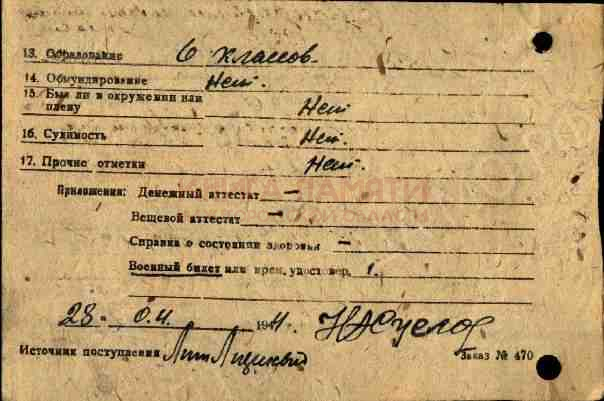 13. Образование 6 классов.
14. Обмундирование Нет.
15. Был ли в окружении или
плену Нет
16. Судимость Нет.
17. Прочие отметки Нет.
Приложения: Денежный аттестат —
ПАМЯТИ
Вещевой аттестат —
Справка о состоянии здоровья —
Военный билет или врем. удостовер. 1.
28
194 г.
Источник поступления
Заказ № 470